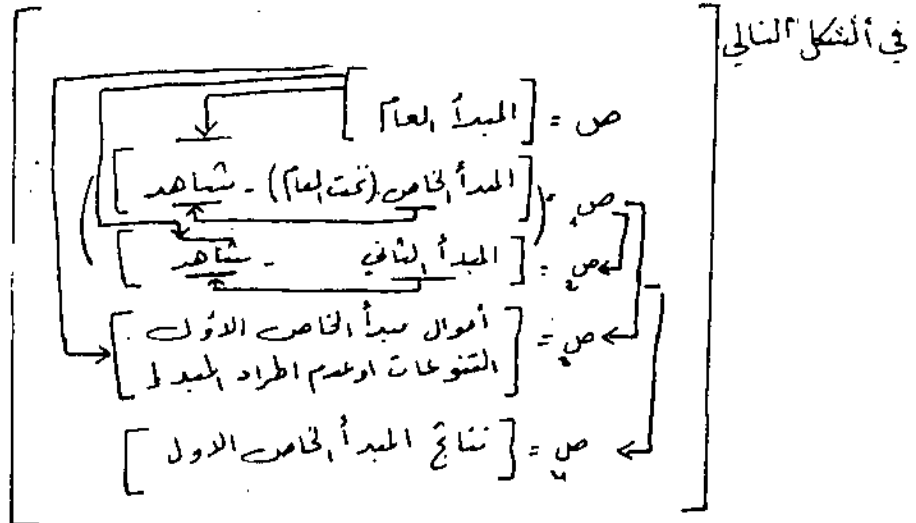 في ألشكل التالي
ص = [المبدأ العام]
ص١ = [المبدأ الخاص (تحت العام) - شاهد]
ص٢ = [المبدأ الثاني - شاهد]
ص٣ = [أموال مبدأ الخاص الاؤل
التنوعات او عدم اطراد المبدأ]
ص٤ = [نتائج المبدأ الخاص الاول]